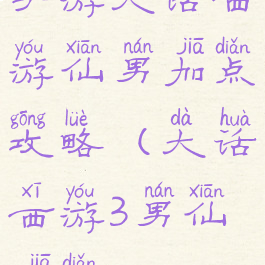 游大话西
yóu xiān nán jiā diǎn
游仙男加点
gōng lüè dà huà
攻略（大话
xī yóu nán xiān
西游3男仙
jiā diǎn